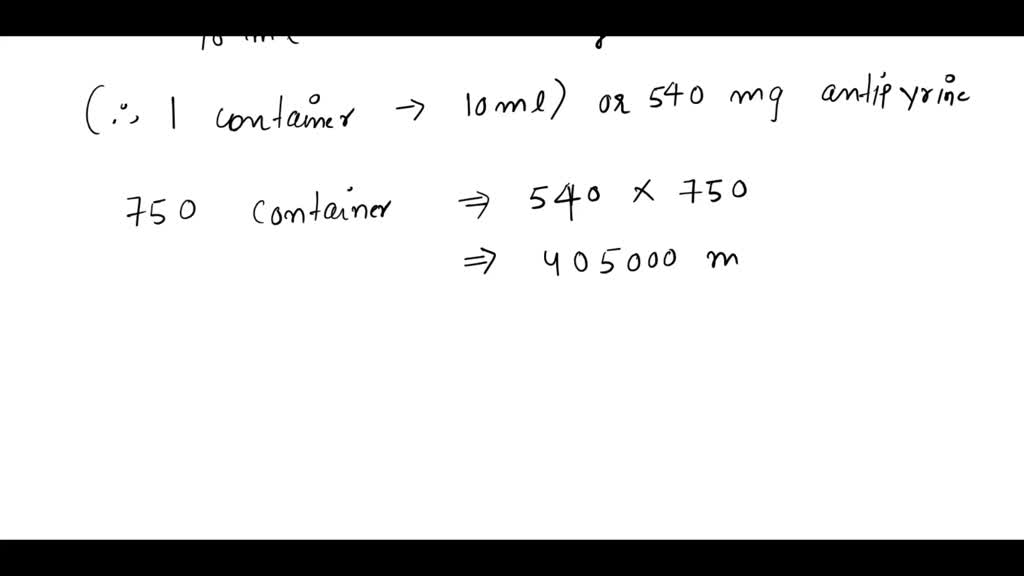 (∴ 1 container → 10 ml) or 540 mg antipyrine
750 container ⇒ 540 × 750
⇒ 405000 m